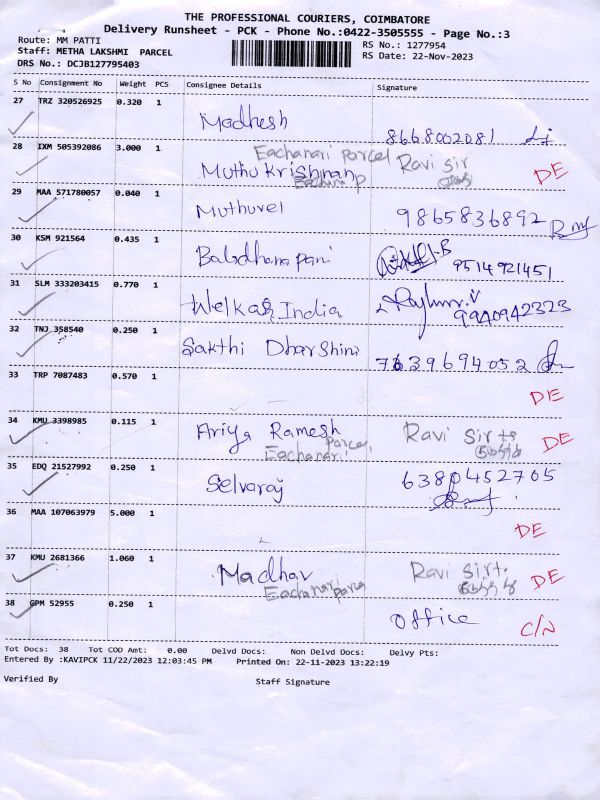 THE PROFESSIONAL COURIERS, COIMBATORE
Delivery Runsheet - PCK - Phone No.:0422-3505555 - Page No.:3
Route: MM PATTI
Staff: METHA LAKSHMI PARCEL
DRS No.: DCJB127795403
RS No.: 1277954
RS Date: 22-Nov-2023
S No Consignment No Weight PCS Consignee Details Signature
27 TRZ 320526925 0.320 1
Madhesh 8668002081
28 IXM 505392086 3.000 1
Eachanari parcel Ravi Sir
Muthu Krishnan DE
29 MAA 571780057 0.040 1
Muthuvel 9865836892
30 KSM 921564 0.435 1
Baladhanapani 9514921451
31 SLM 333203415 0.770 1
Welkas India 9940942323
32 TNJ 358540 0.250 1
Sakthi Dharshini 7639694052
33 TRP 7087483 0.570 1
DE
34 KMU 3398985 0.115 1
Ariya Ramesh Ravi Sir DE
Parcel
Eachanari
35 EDQ 21527992 0.250 1
Selvaraj 6380452705
36 MAA 107063979 5.000 1
DE
37 KMU 2681366 1.060 1
Madhav Ravi Sir DE
Eachanari parcel
38 GPM 52955 0.250 1
office C/N
Tot Docs: 38 Tot COD Amt: 0.00 Delvd Docs: Non Delvd Docs: Delvy Pts:
Entered By :KAVIPCK 11/22/2023 12:03:45 PM Printed On: 22-11-2023 13:22:19
Verified By Staff Signature